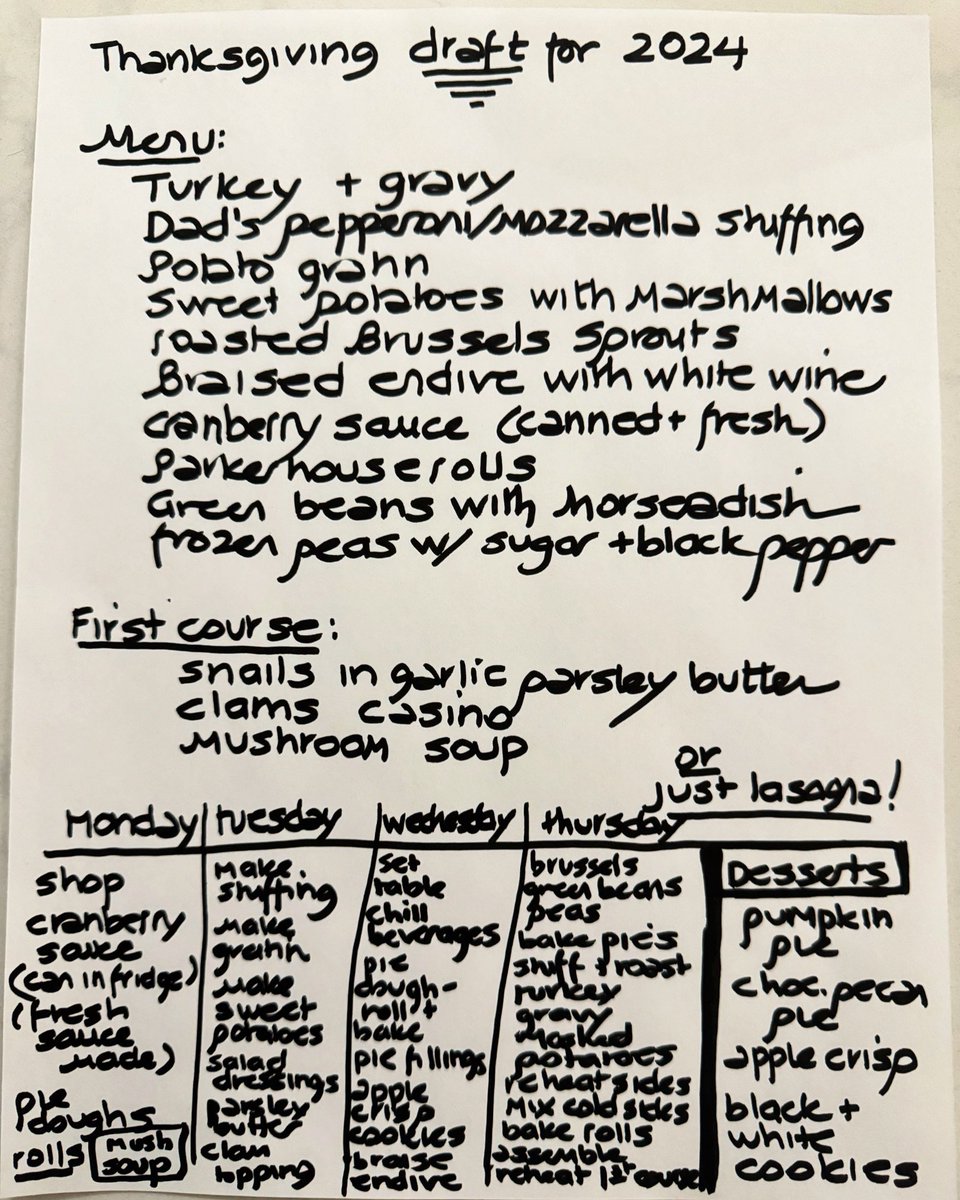 Thanksgiving draft for 2024
Menu:
Turkey + gravy
Dad's pepperoni/mozzarella stuffing
Potato gratin
Sweet potatoes with Marshmallows
roasted Brussels Sprouts
Braised endive with white wine
cranberry sauce (canned + fresh)
Parkerhouse rolls
Green beans with horseradish
frozen peas w/ sugar + black pepper
First course:
snails in garlic parsley butter
clams casino
Mushroom soup
or
just lasagna!
Monday
shop
cranberry
sauce
(can in fridge)
(fresh
sauce
made)
Pie
doughs
rolls
Mush
soup
Tuesday
Make
stuffing
Make
gratin
Make
sweet
potatoes
salad
dressings
parsley
butter
clam
topping
Wednesday
set
table
chill
beverages
pie
dough-
roll +
bake
pie fillings
apple
crisp
cookies
braise
endive
Thursday
brussels
green beans
peas
bake pie's
stuff + roast
turkey
gravy
mashed
potatoes
reheat sides
Mix cold sides
bake rolls
assemble
reheat 1st course
Desserts
pumpkin
pie
choc. pecan
pie
apple crisp
black +
white
cookies